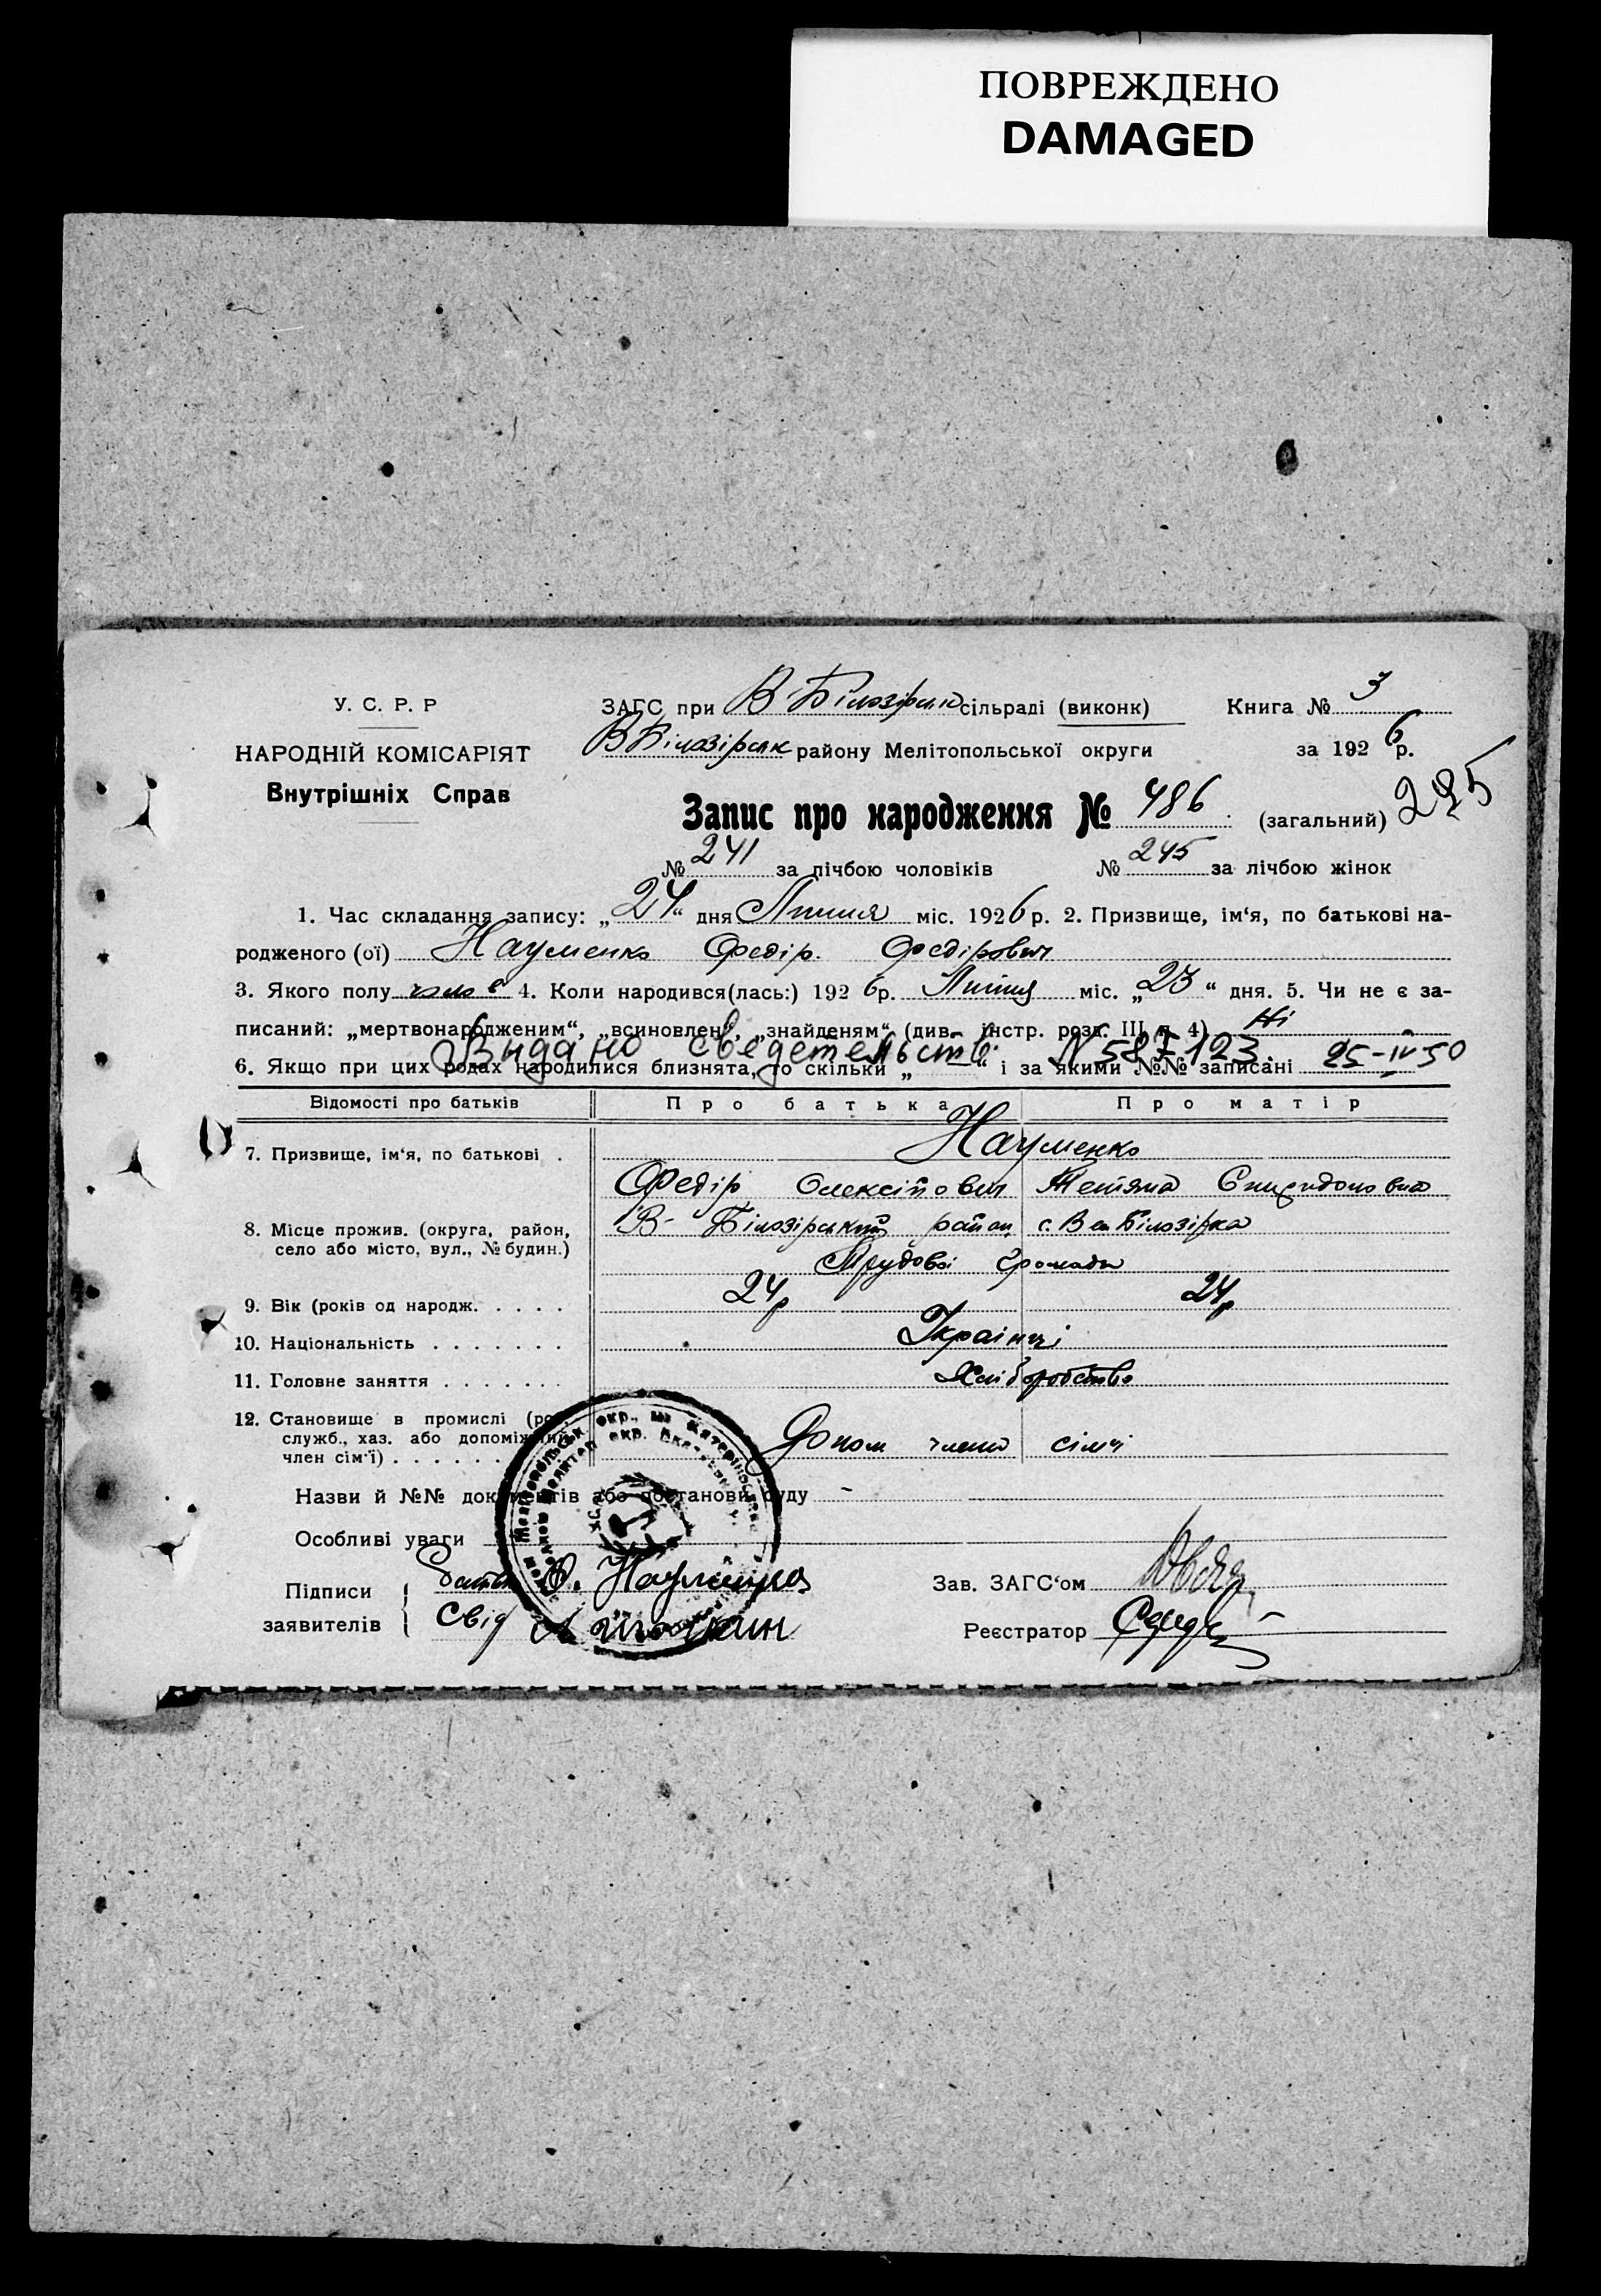 ПОВРЕЖДЕНО
DAMAGED
У. С. Р. Р
НАРОДНІЙ КОМІСАРІЯТ
Внутрішніх Справ
ЗАГС при В-Білозірськ сільраді (виконк) Книга № 3
ВБілозірськ району Мелітопольської округи за 1926 р.
Запис про народження № 486 (загальний) 225
№ 241 за лічбою чоловіків № 245 за лічбою жінок
1. Час складання запису: „24“ дня Липня міс. 1926 р. 2. Призвище, ім‘я, по батькові на-
родженого (ої) Науменко Федір Федірович
3. Якого полу чол 4. Коли народився(лась:) 1926 р. Липня міс. „23“ дня. 5. Чи не є за-
писаний: „мертвонародженим“, „всиновлен“, „знайденям“ (див. інстр. розд. III п. 4) Ні
Выдано сведетельств. N 587123. 25-IV 50
6. Якщо при цих родах народилися близнята, то скільки „ “ і за якими №№ записані
Відомості про батьків Про батька Про матір
7. Призвище, ім‘я, по батькові . Науменко
Федір Олексійович Тетяна Спиридоновна
8. Місце прожив. (округа, район, В-Білозірський район с. Вел Білозірка
село або місто, вул., № будин.)
Трудової громади
9. Вік (років од народж. . . . . 24р 24р
10. Національність . . . . . . . Українці
11. Головне заняття . . . . . . . Хліборобство
12. Становище в промислі (ро
служб., хаз. або допоміжний Допом члени сімї
член сім‘ї) . . . . . .
Назви й №№ документів або постанови суду -
Особливі уваги
Підписи заявителів
Батьк Ф. Науменко
Свід
Зав. ЗАГС‘ом
Реєстратор